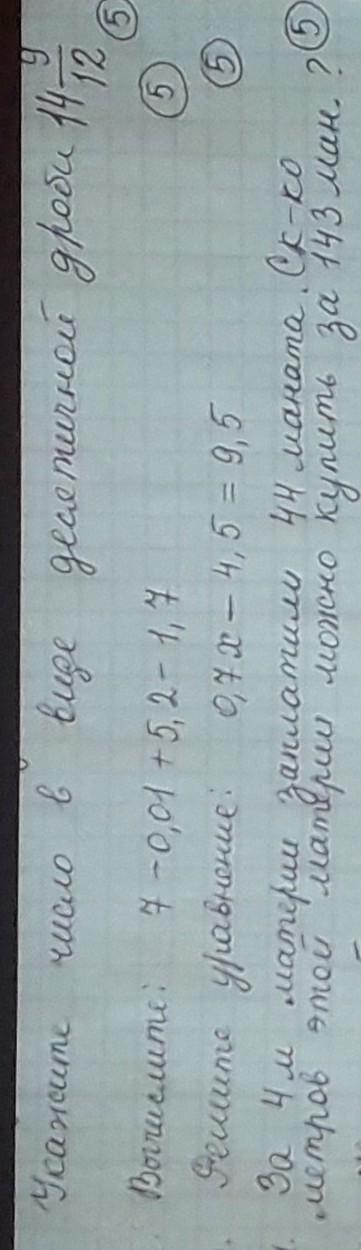 Укажите число в виде десятичной дроби 14 9/12 (5)
Вычислите: 7 - 0,01 + 5,2 - 1,7 (5)
Решите уравнение: 0,7x - 4,5 = 9,5 (5)
За 4 м материи заплатили 44 маната. Ск-ко
метров этой материи можно купить за 143 ман.? (5)